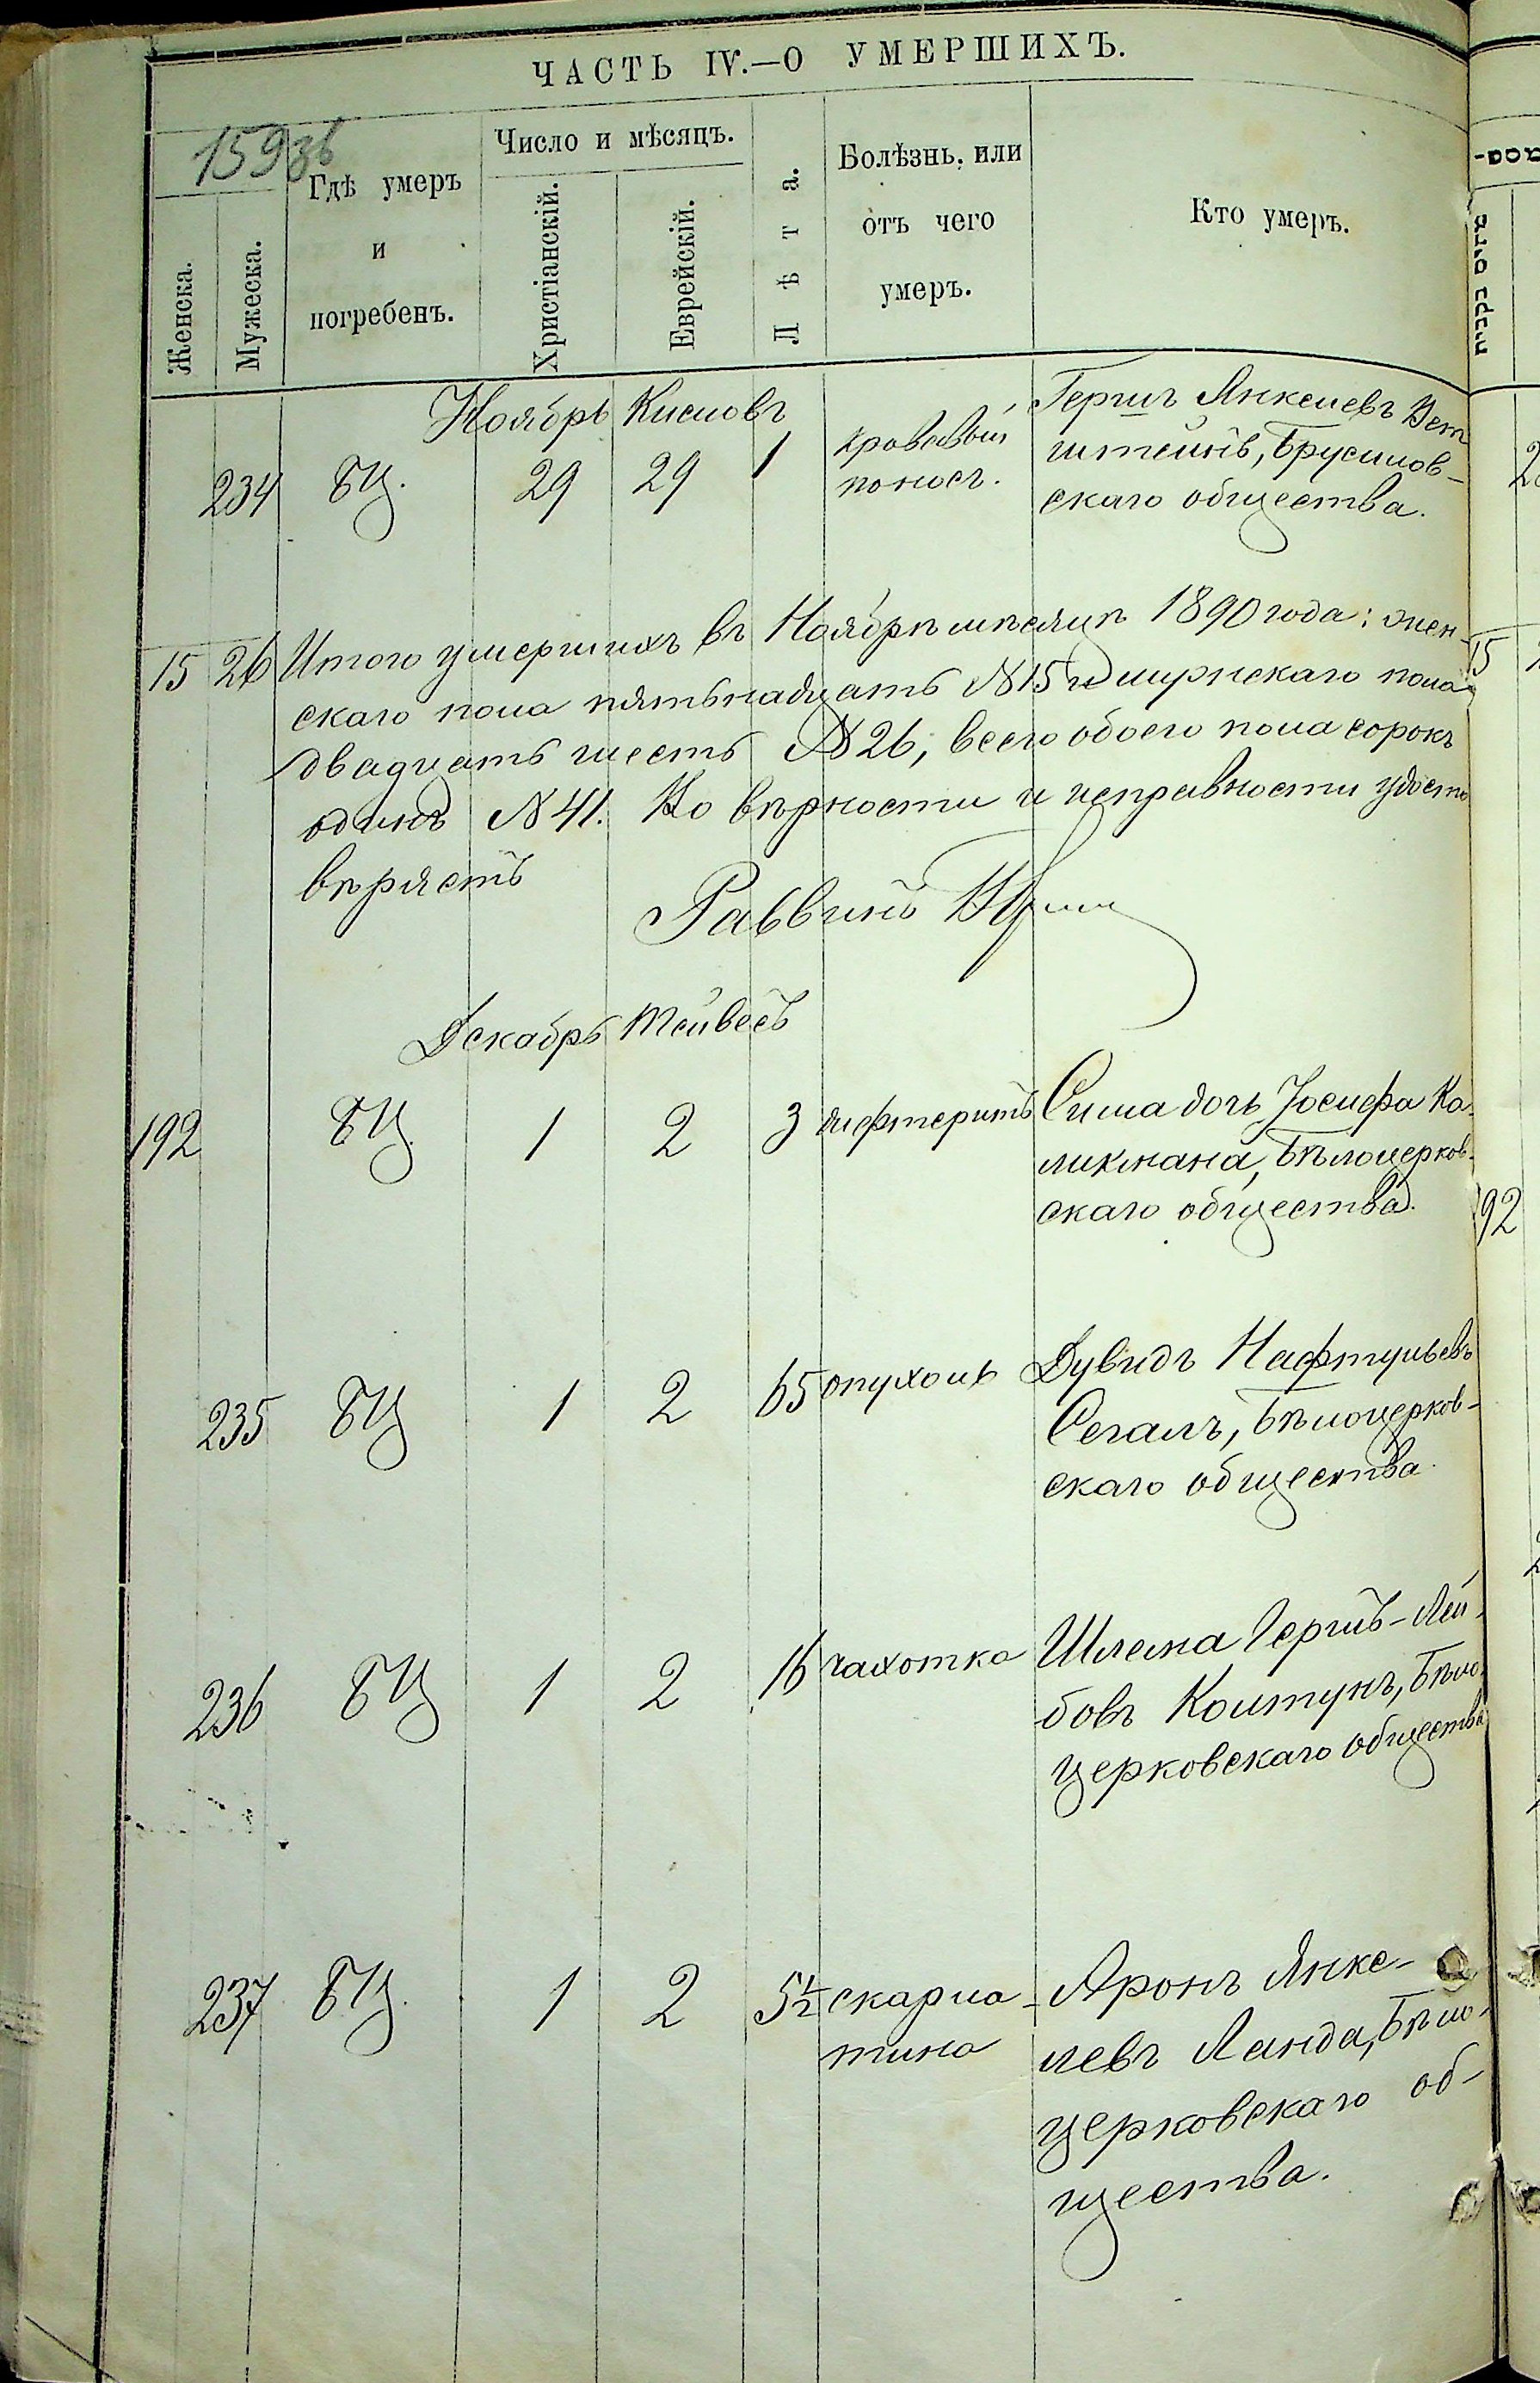 ЧАСТЬ IV.—О УМЕРШИХЪ.
159зв
Женска.
Мужеска.
Гдѣ умеръ
и
погребенъ.
Число и мѣсяцъ.
Христіанскій.
Еврейскій.
Лѣта.
Болѣзнь, или
отъ чего
умеръ.
Кто умеръ.
Ноябрь Кислевъ
234 БЦ. 29 29 1 кровавый
поносъ.
Гершъ Янкелевъ
штейнъ, Брусилов-
скаго общества.
15 26 Итого умершихъ въ Ноябрѣ мѣсяцѣ 1890 года: жен-
скаго пола пятьнадцать №15 и мужескаго пола
двадцать шесть №26, всего обоего пола сорокъ
одинъ №41. Во вѣрности и исправности удосто
вѣряетъ
Раввинъ
Декабрь Тейвесъ
192 БЦ. 1 2 3 дифтеритъ Сима дочь Іосифа Ка-
ликмана, Бѣлоцерков-
скаго общества.
235 БЦ 1 2 65 опухоль Дувидъ Нафтульевъ
Сегалъ, Бѣлоцерков-
скаго общества.
236 БЦ 1 2 16 чахотка Шлема Гершъ-Лей-
бовъ Колтунъ, Бѣло-
церковскаго общества
237 БЦ. 1 2 5½ скарла-
тина
Аронъ Янке-
левъ Ланда, Бѣло-
церковскаго об-
щества.
15
92